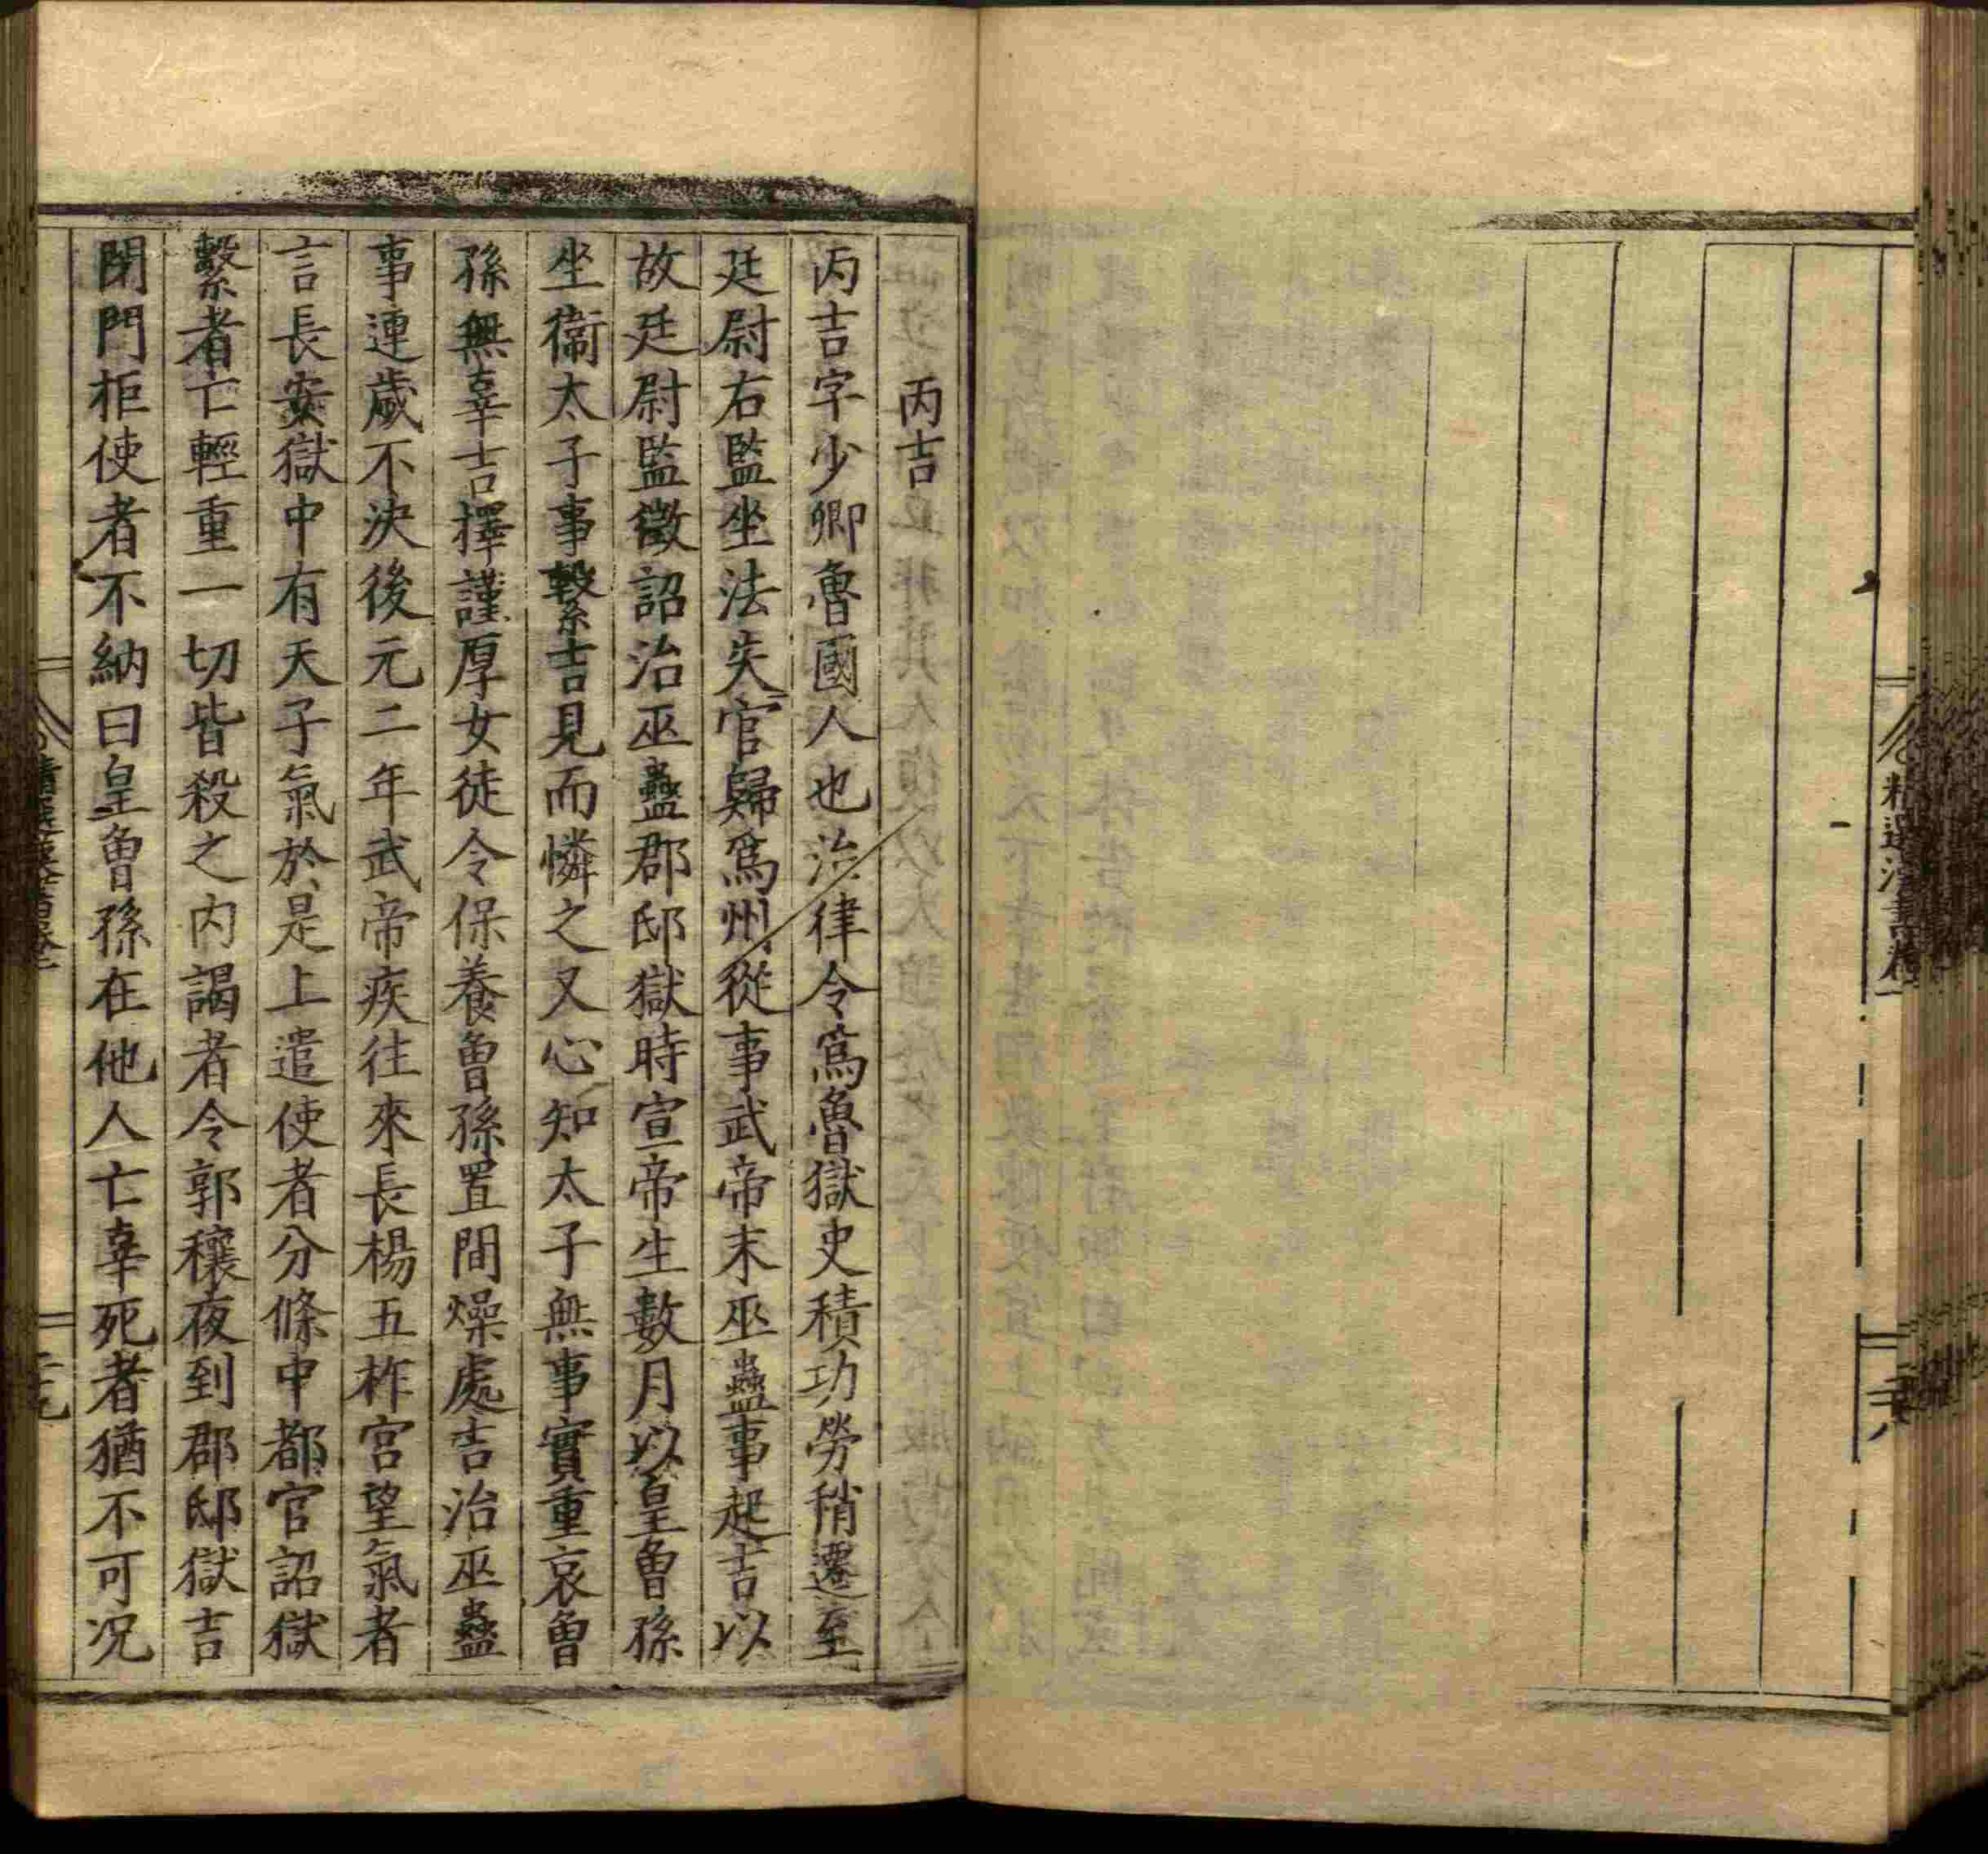 精選漢書卷一
二十八
丙吉
丙吉字少卿魯國人也治律令爲魯獄史積功勞稍遷至
廷尉右監坐法失官歸爲州從事武帝末巫蠱事起吉以
故廷尉監徵詔治巫蠱郡邸獄時宣帝生數月以皇曾孫
坐衞太子事繫吉見而憐之又心知太子無事實重哀曾
孫無辜吉擇謹厚女徒令保養曾孫置間燥處吉治巫蠱
事連歲不決後元二年武帝疾往來長楊五柞宮望氣者
言長安獄中有天子氣於是上遣使者分條中都官詔獄
繫者亡輕重一切皆殺之內謁者令郭穰夜到郡邸獄吉
閉門拒使者不納曰皇曾孫在他人亡辜死者猶不可况